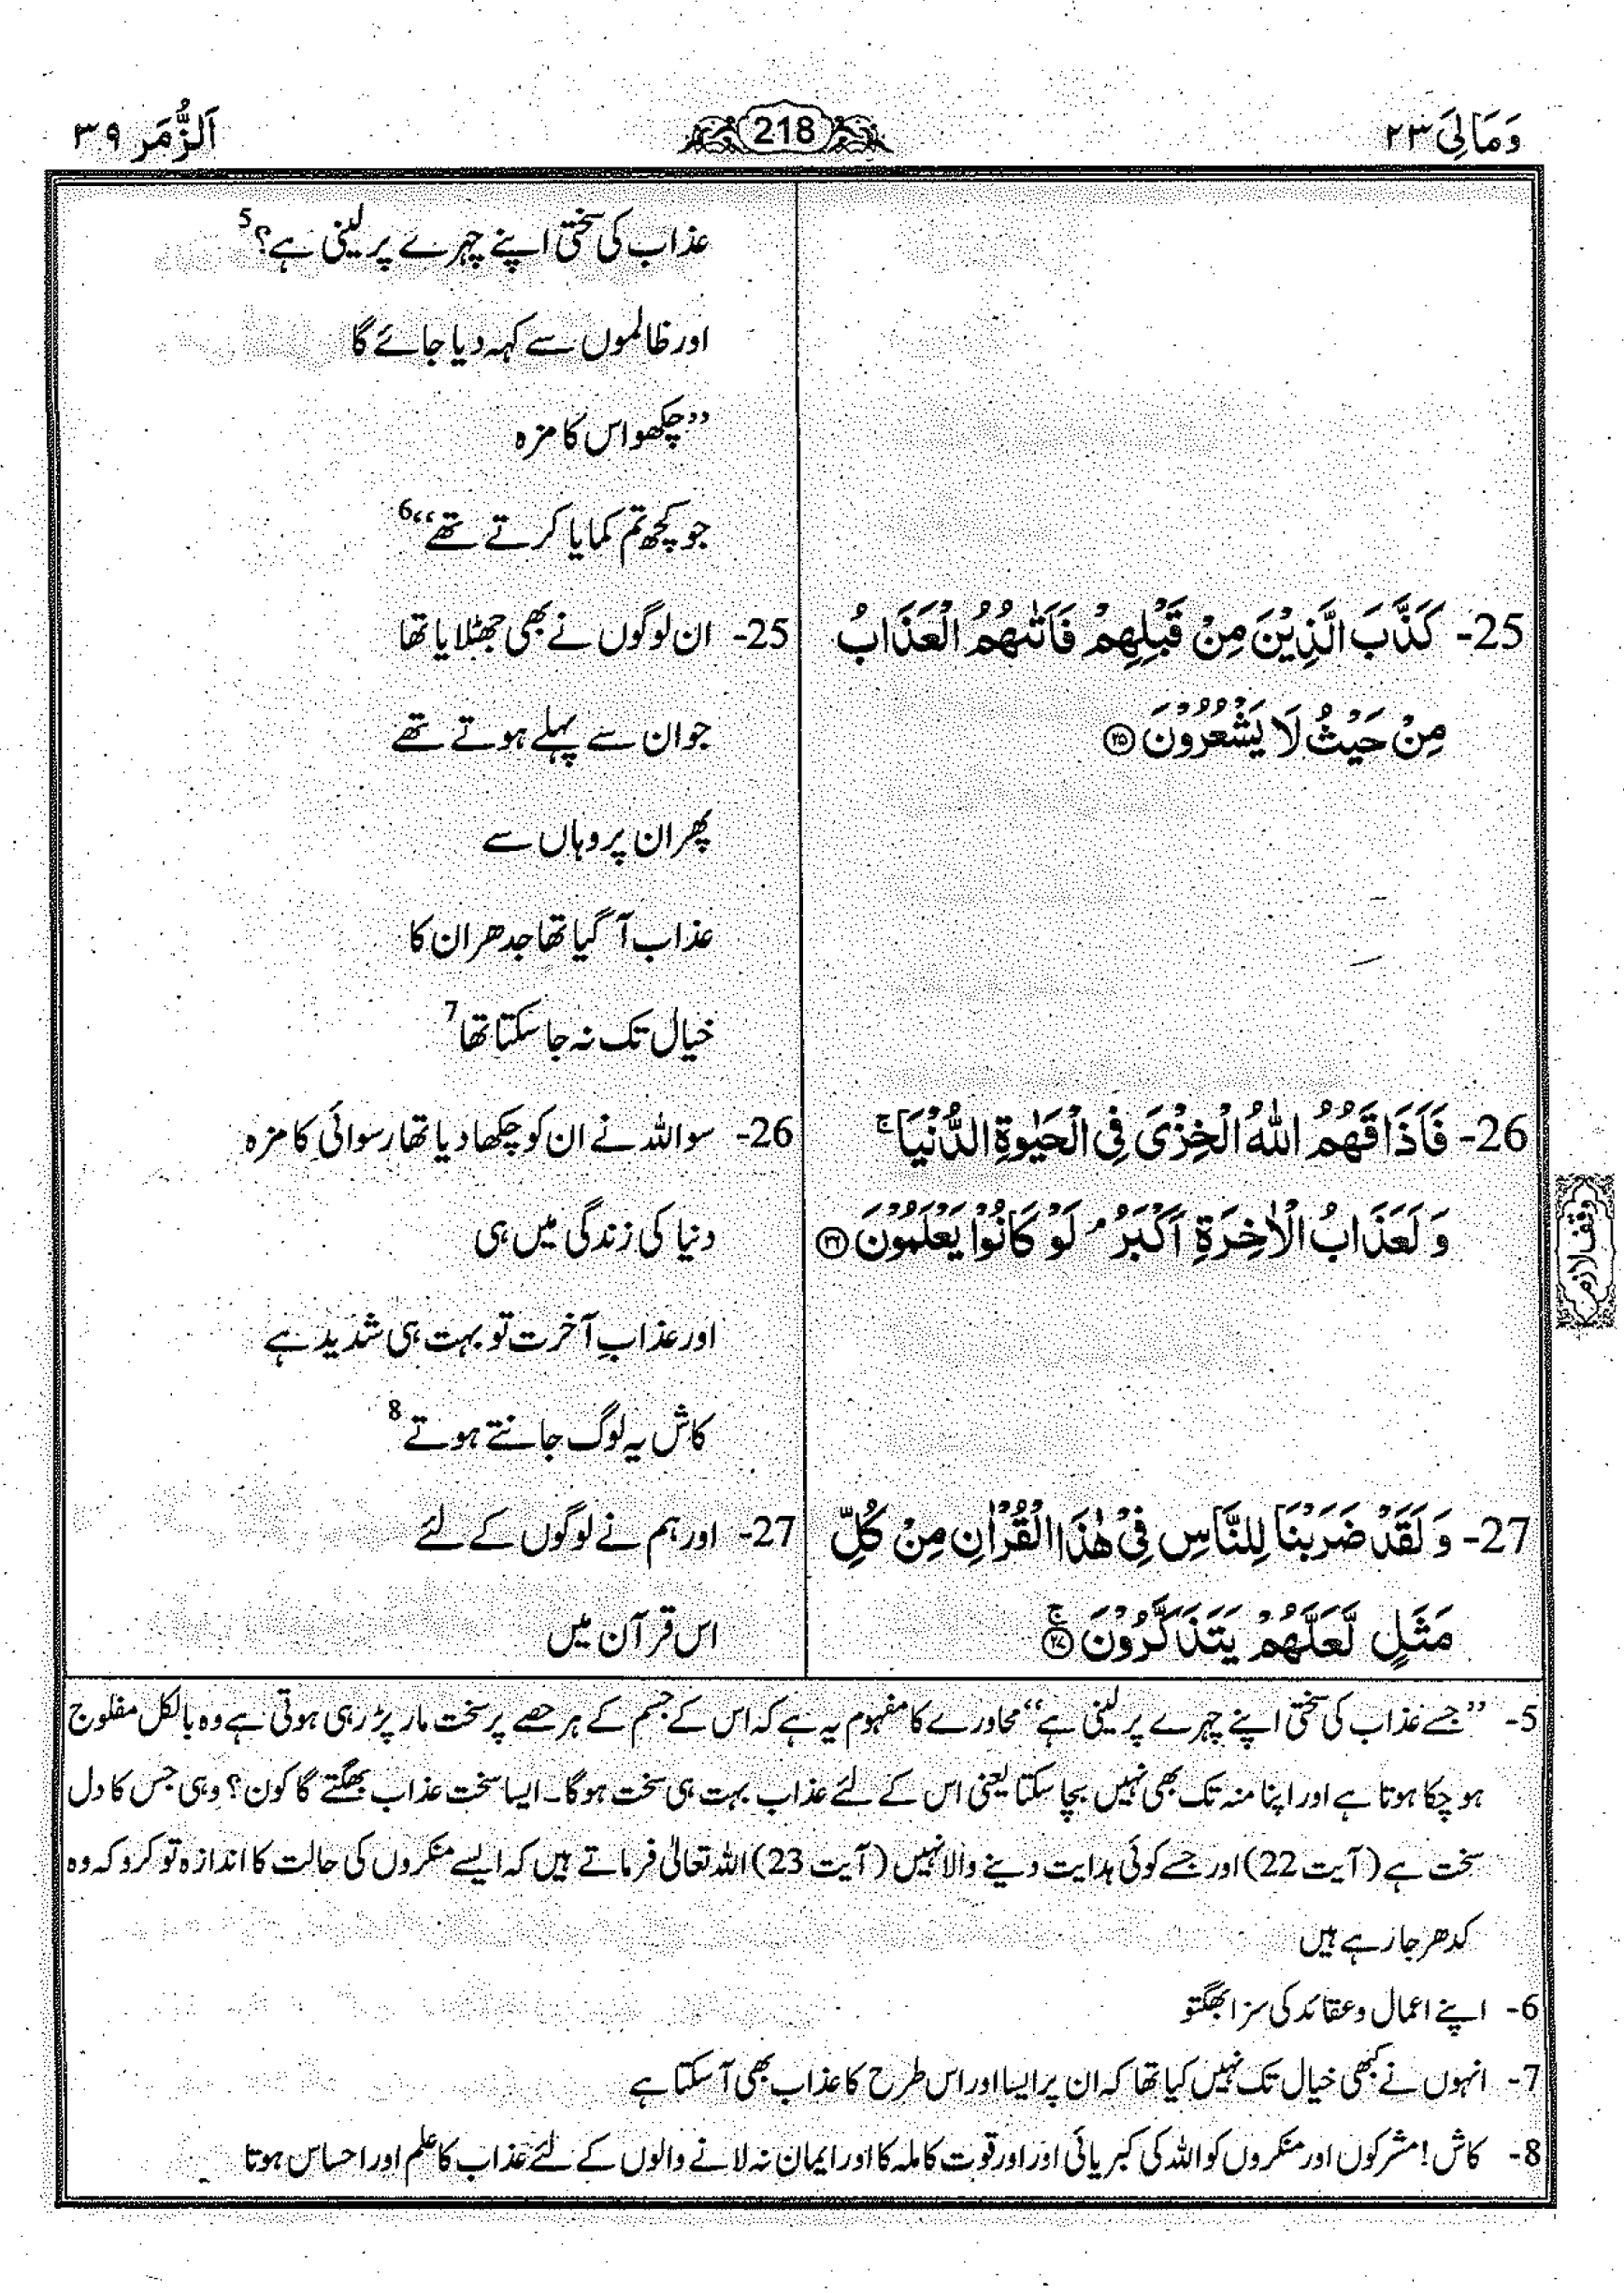 وَمَالِيَ ٢٣
218
اَلزُّمَر ٣٩
عذاب کی سختی اپنے چہرے پر لینی ہے؟5
اور ظالموں سے کہہ دیا جائے گا
”چکھو اس کا مزہ
جو کچھ تم کمایا کرتے تھے“6
25- كَذَّبَ الَّذِيْنَ مِنْ قَبْلِهِمْ فَاَتٰىهُمُ الْعَذَابُ
مِنْ حَيْثُ لَا يَشْعُرُوْنَ ۝٢٥
25- ان لوگوں نے بھی جھٹلایا تھا
جو ان سے پہلے ہوتے تھے
پھر ان پر وہاں سے
عذاب آ گیا تھا جدھر ان کا
خیال تک نہ جا سکتا تھا7
26- فَاَذَاقَهُمُ اللّٰهُ الْخِزْيَ فِي الْحَيٰوةِ الدُّنْيَا ۚ
وَ لَعَذَابُ الْاٰخِرَةِ اَكْبَرُ ۘ لَوْ كَانُوْا يَعْلَمُوْنَ ۝٢٦
وقف لازم
26- سو اللہ نے ان کو چکھا دیا تھا رسوائی کا مزہ
دنیا کی زندگی میں ہی
اور عذابِ آخرت تو بہت ہی شدید ہے
کاش یہ لوگ جانتے ہوتے8
27- وَ لَقَدْ ضَرَبْنَا لِلنَّاسِ فِيْ هٰذَا الْقُرْاٰنِ مِنْ كُلِّ
مَثَلٍ لَّعَلَّهُمْ يَتَذَكَّرُوْنَ ۝٢٧ۚ
27- اور ہم نے لوگوں کے لئے
اس قرآن میں
5- ”جسے عذاب کی سختی اپنے چہرے پر لینی ہے“ محاورے کا مفہوم یہ ہے کہ اس کے جسم کے ہر حصے پر سخت مار پڑ رہی ہوتی ہے وہ بالکل مفلوج
ہو چکا ہوتا ہے اور اپنا منہ تک بھی نہیں بچا سکتا یعنی اس کے لئے عذاب بہت ہی سخت ہوگا۔ ایسا سخت عذاب بھگتے گا کون؟ وہی جس کا دل
سخت ہے (آیت 22) اور جسے کوئی ہدایت دینے والا نہیں (آیت 23) اللہ تعالیٰ فرماتے ہیں کہ ایسے منکروں کی حالت کا اندازہ تو کرو کہ وہ
کدھر جا رہے ہیں
6- اپنے اعمال و عقائد کی سزا بھگتو
7- انہوں نے کبھی خیال تک نہیں کیا تھا کہ ان پر ایسا اور اس طرح کا عذاب بھی آ سکتا ہے
8- کاش! مشرکوں اور منکروں کو اللہ کی کبریائی اور اور قوت کاملہ کا اور ایمان نہ لانے والوں کے لئے عذاب کا علم اور احساس ہوتا